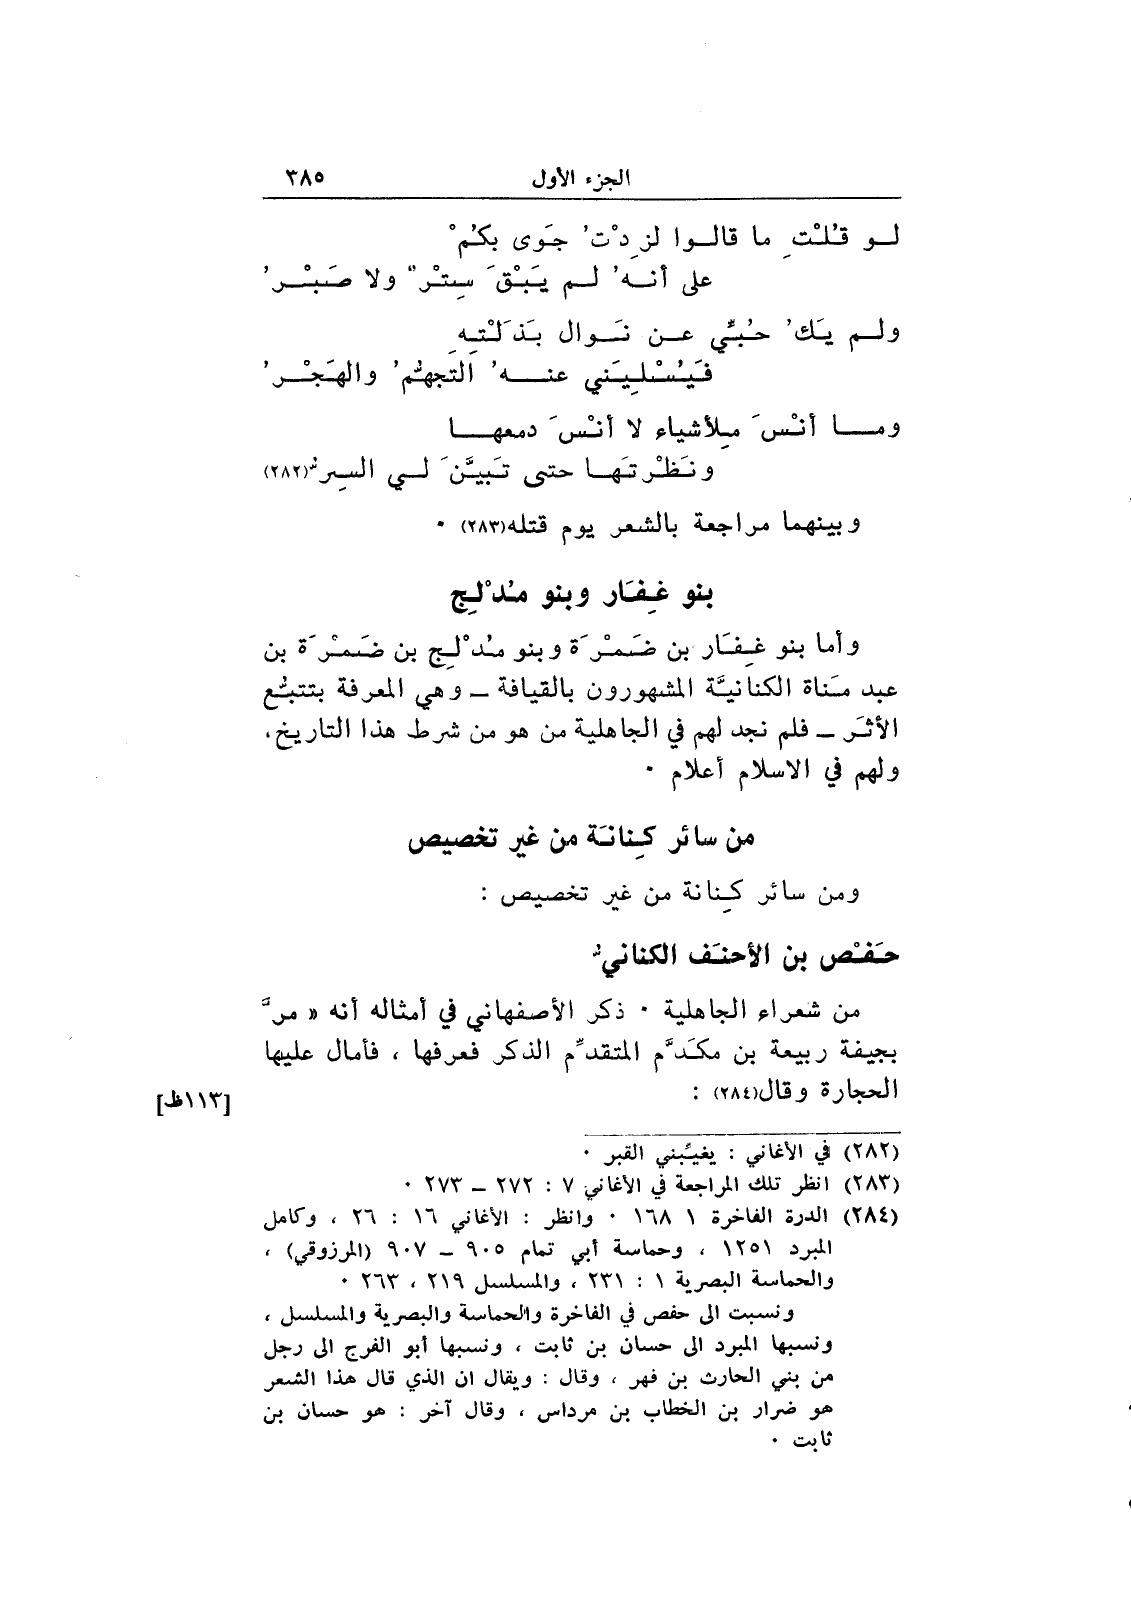 الجزء الأول ٣٨٥
لو قُلْتِ ما قالوا لزِدْتُ جَوى بكُمْ
على أنهُ لم يَبْقَ سِتْرٌ ولا صَبْرُ
ولم يَكُ حُبِّي عن نَوال بَذَلْتِهِ
فَيُسْلِيَني عنهُ التجهُّمُ والهَجْرُ
وما أنْسَ مِلأشياء لا أنْسَ دمعها
ونَظْرتَها حتى تَبَيَّنَ لي السِرُّ(٢٨٢)
وبينهما مراجعة بالشعر يوم قتله(٢٨٣) ٠
بنو غِفَار وبنو مُدْلِج
وأما بنو غِفَار بن ضَمْرَة وبنو مُدْلِج بن ضَمْرَة بن
عبد مَناة الكنانيَّة المشهورون بالقيافة ــ وهي المعرفة بتتبُّع
الأثَر ــ فلم نجد لهم في الجاهلية من هو من شرط هذا التاريخ،
ولهم في الاسلام أعلام ٠
من سائر كِنانَة من غير تخصيص
ومن سائر كِنانة من غير تخصيص :
حَفْص بن الأحنَف الكنانيُّ
من شعراء الجاهلية ٠ ذكر الأصفهاني في أمثاله أنه « مرَّ
بجيفة ربيعة بن مكدَّم المتقدِّم الذكر فعرفها ، فأمال عليها
الحجارة وقال(٢٨٤) :
[١١٣ظ]
(٢٨٢) في الأغاني : يغيِّبني القبر ٠
(٢٨٣) انظر تلك المراجعة في الأغاني ٧ : ٢٧٢ ــ ٢٧٣ ٠
(٢٨٤) الدرة الفاخرة ١ ١٦٨ ٠ وانظر : الأغاني ١٦ : ٢٦ ، وكامل
المبرد ١٢٥١ ، وحماسة أبي تمام ٩٠٥ ــ ٩٠٧ (المرزوقي) ،
والحماسة البصرية ١ : ٢٣١ ، والمسلسل ٢١٩ ، ٢٦٣ ٠
ونسبت الى حفص في الفاخرة والحماسة والبصرية والمسلسل ،
ونسبها المبرد الى حسان بن ثابت ، ونسبها أبو الفرج الى رجل
من بني الحارث بن فهر ، وقال : ويقال ان الذي قال هذا الشعر
هو ضرار بن الخطاب بن مرداس ، وقال آخر : هو حسان بن
ثابت ٠